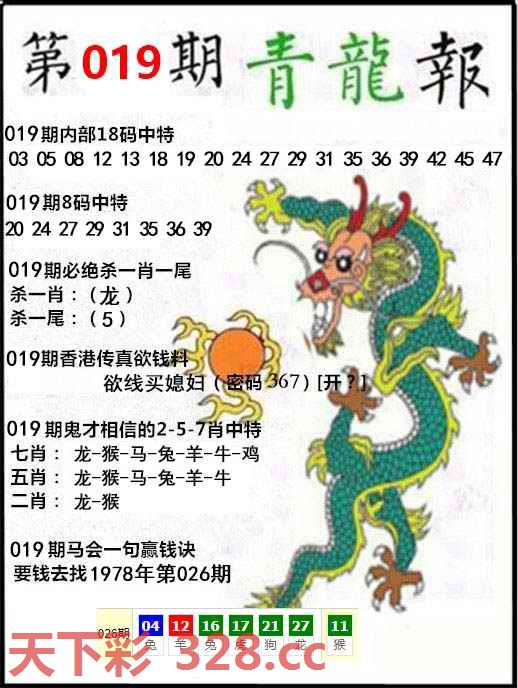 第019期青龍報
019期内部18码中特
03 05 08 12 13 18 19 20 24 27 29 31 35 36 39 42 45 47
019期8码中特
20 24 27 29 31 35 36 39
019期必绝杀一肖一尾
杀一肖：（龙）
杀一尾：（5）
019期香港传真欲钱料
欲线买媳妇（密码367）[开？]
019期鬼才相信的2-5-7肖中特
七肖： 龙-猴-马-兔-羊-牛-鸡
五肖： 龙-猴-马-兔-羊-牛
二肖： 龙-猴
019期马会一句赢钱诀
要钱去找1978年第026期
026期 04 12 16 17 21 27 11
兔 羊 兔 虎 狗 龙 猴
天下彩 328.cc